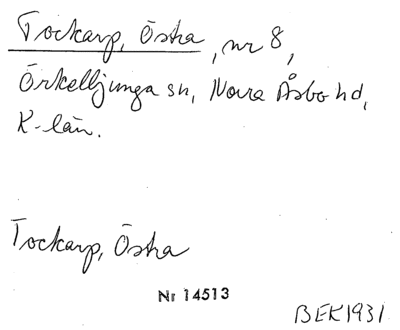 Tockarp, Östra, nr 8,
Örkelljunga sn, Norra Åsbo hd,
K-län.
Tockarp, Östra
Nr 14513
BEK1931